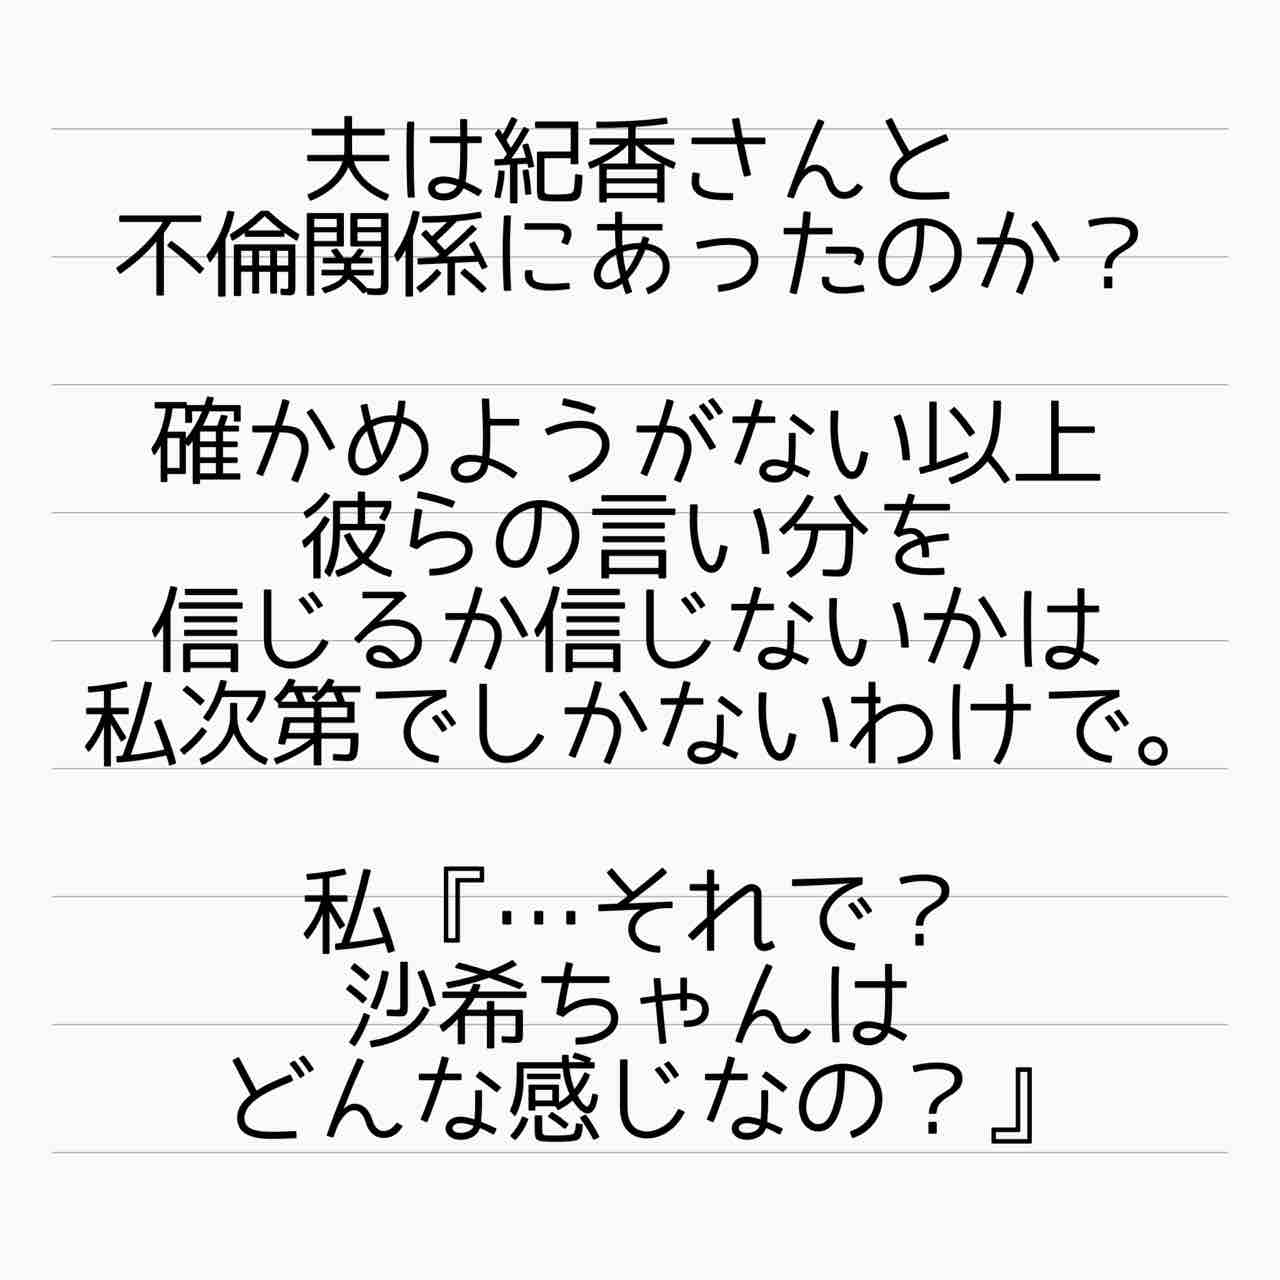 夫は紀香さんと
不倫関係にあったのか？
確かめようがない以上
彼らの言い分を
信じるか信じないかは
私次第でしかないわけで。
私『…それで？
沙希ちゃんは
どんな感じなの？』